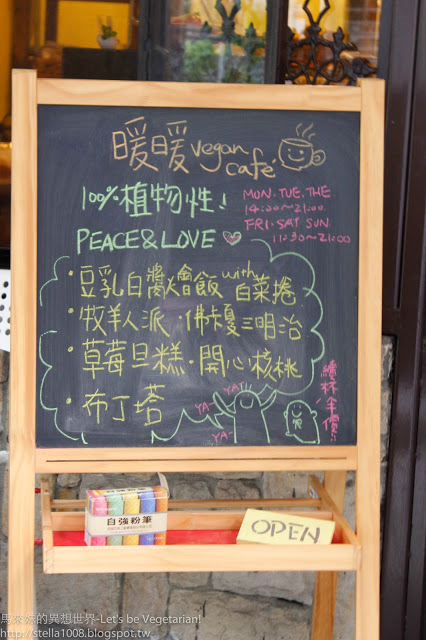 暖暖 vegan café
100% 植物性!
PEACE & LOVE
MON. TUE. THE
14:30~21:00
FRI. SAT SUN
11:30~21:00
・豆乳白醬燴飯 with 白菜捲
・牧羊人派・佛卡夏三明治
・草莓旦糕・開心核桃
・布丁塔
YA~
YAT!
YA~
續杯半價!!
自強粉筆
OPEN
馬來妹的異想世界-Let's be Vegetarian!
http://stella1008.blogspot.tw